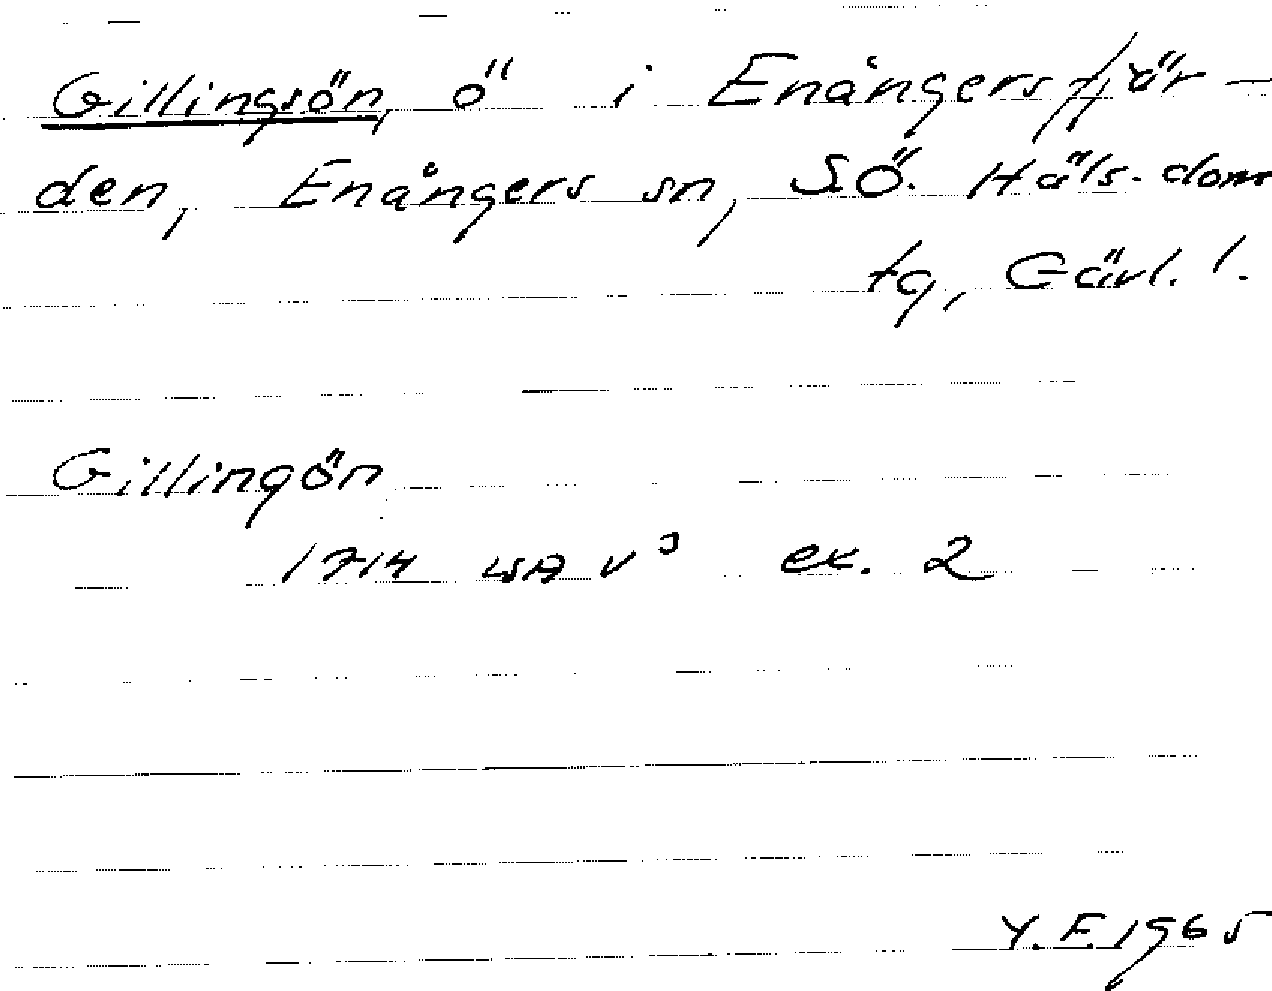 Gillingsön, ö i Enångersfjär-
den, Enångers sn, SÖ. Häls. doms
tg, Gävl. l.
Gillingön
1714 LSA V³ ex. 2
Y.F. 1965